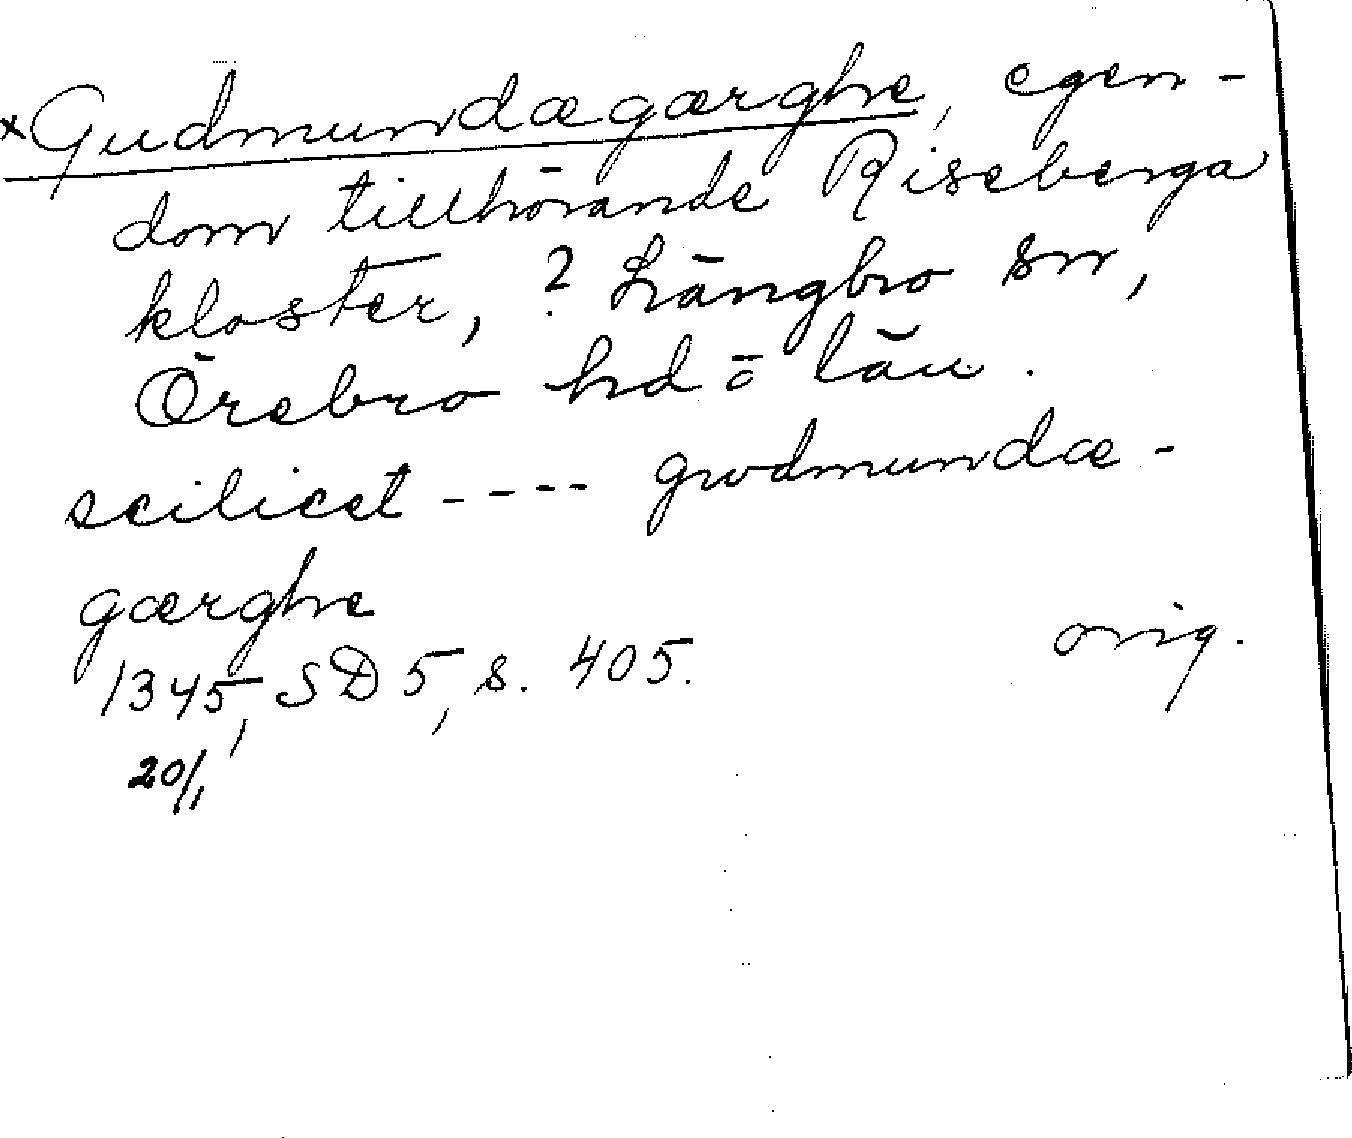 ×Gudmundægærghe, egen-
dom tillhörande Riseberga
kloster, ? Längbro sn,
Örebro hd o län.
scilicet ---- gwdmundæ-
gærghe
1345, SD 5, s. 405. orig.
20/1